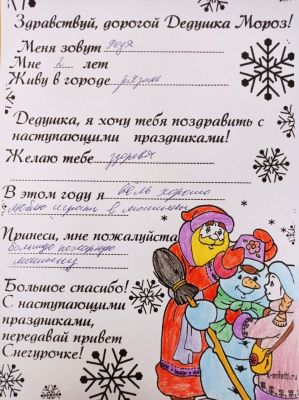 Здравствуй, дорогой Дедушка Мороз!
Меня зовут Федя
Мне 2 лет
Живу в городе Рязань
Дедушка, я хочу тебя поздравить с
наступающими праздниками!
Желаю тебе здоровья
В этом году я вёл хорошо
люблю играть в машинки
Принеси, мне пожалуйста
большую пожарную
машину
Большое спасибо!
С наступающими
праздниками,
передавай привет
Снегурочке!